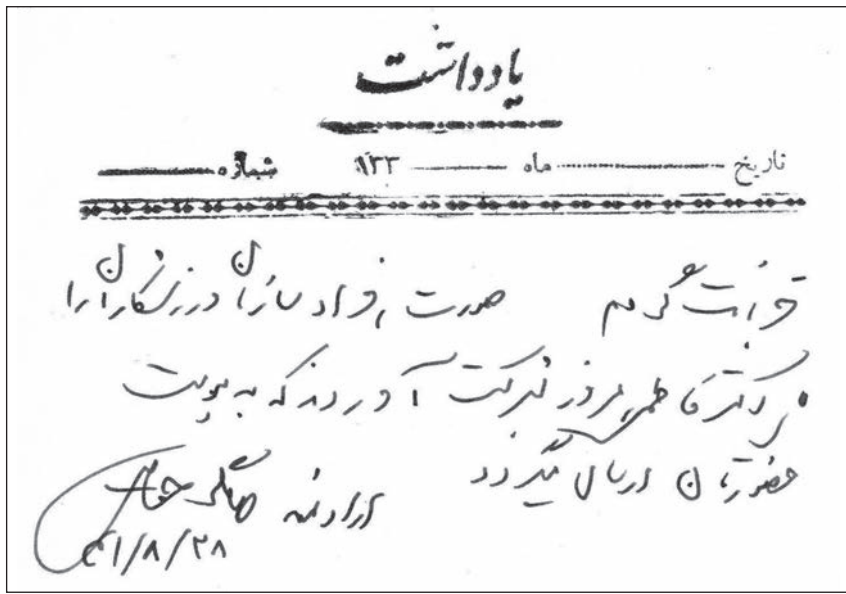 یادداشت
تاریخ ماه ۱۳۳ شماره
قربانت گردم صورت افراد سازمان ورزشکاران را
دکتر فاطمی امروز شرکت آوردند که به پیوست
حضورتان ارسال میگردد
ارادتمند
۴۱/۸/۲۸